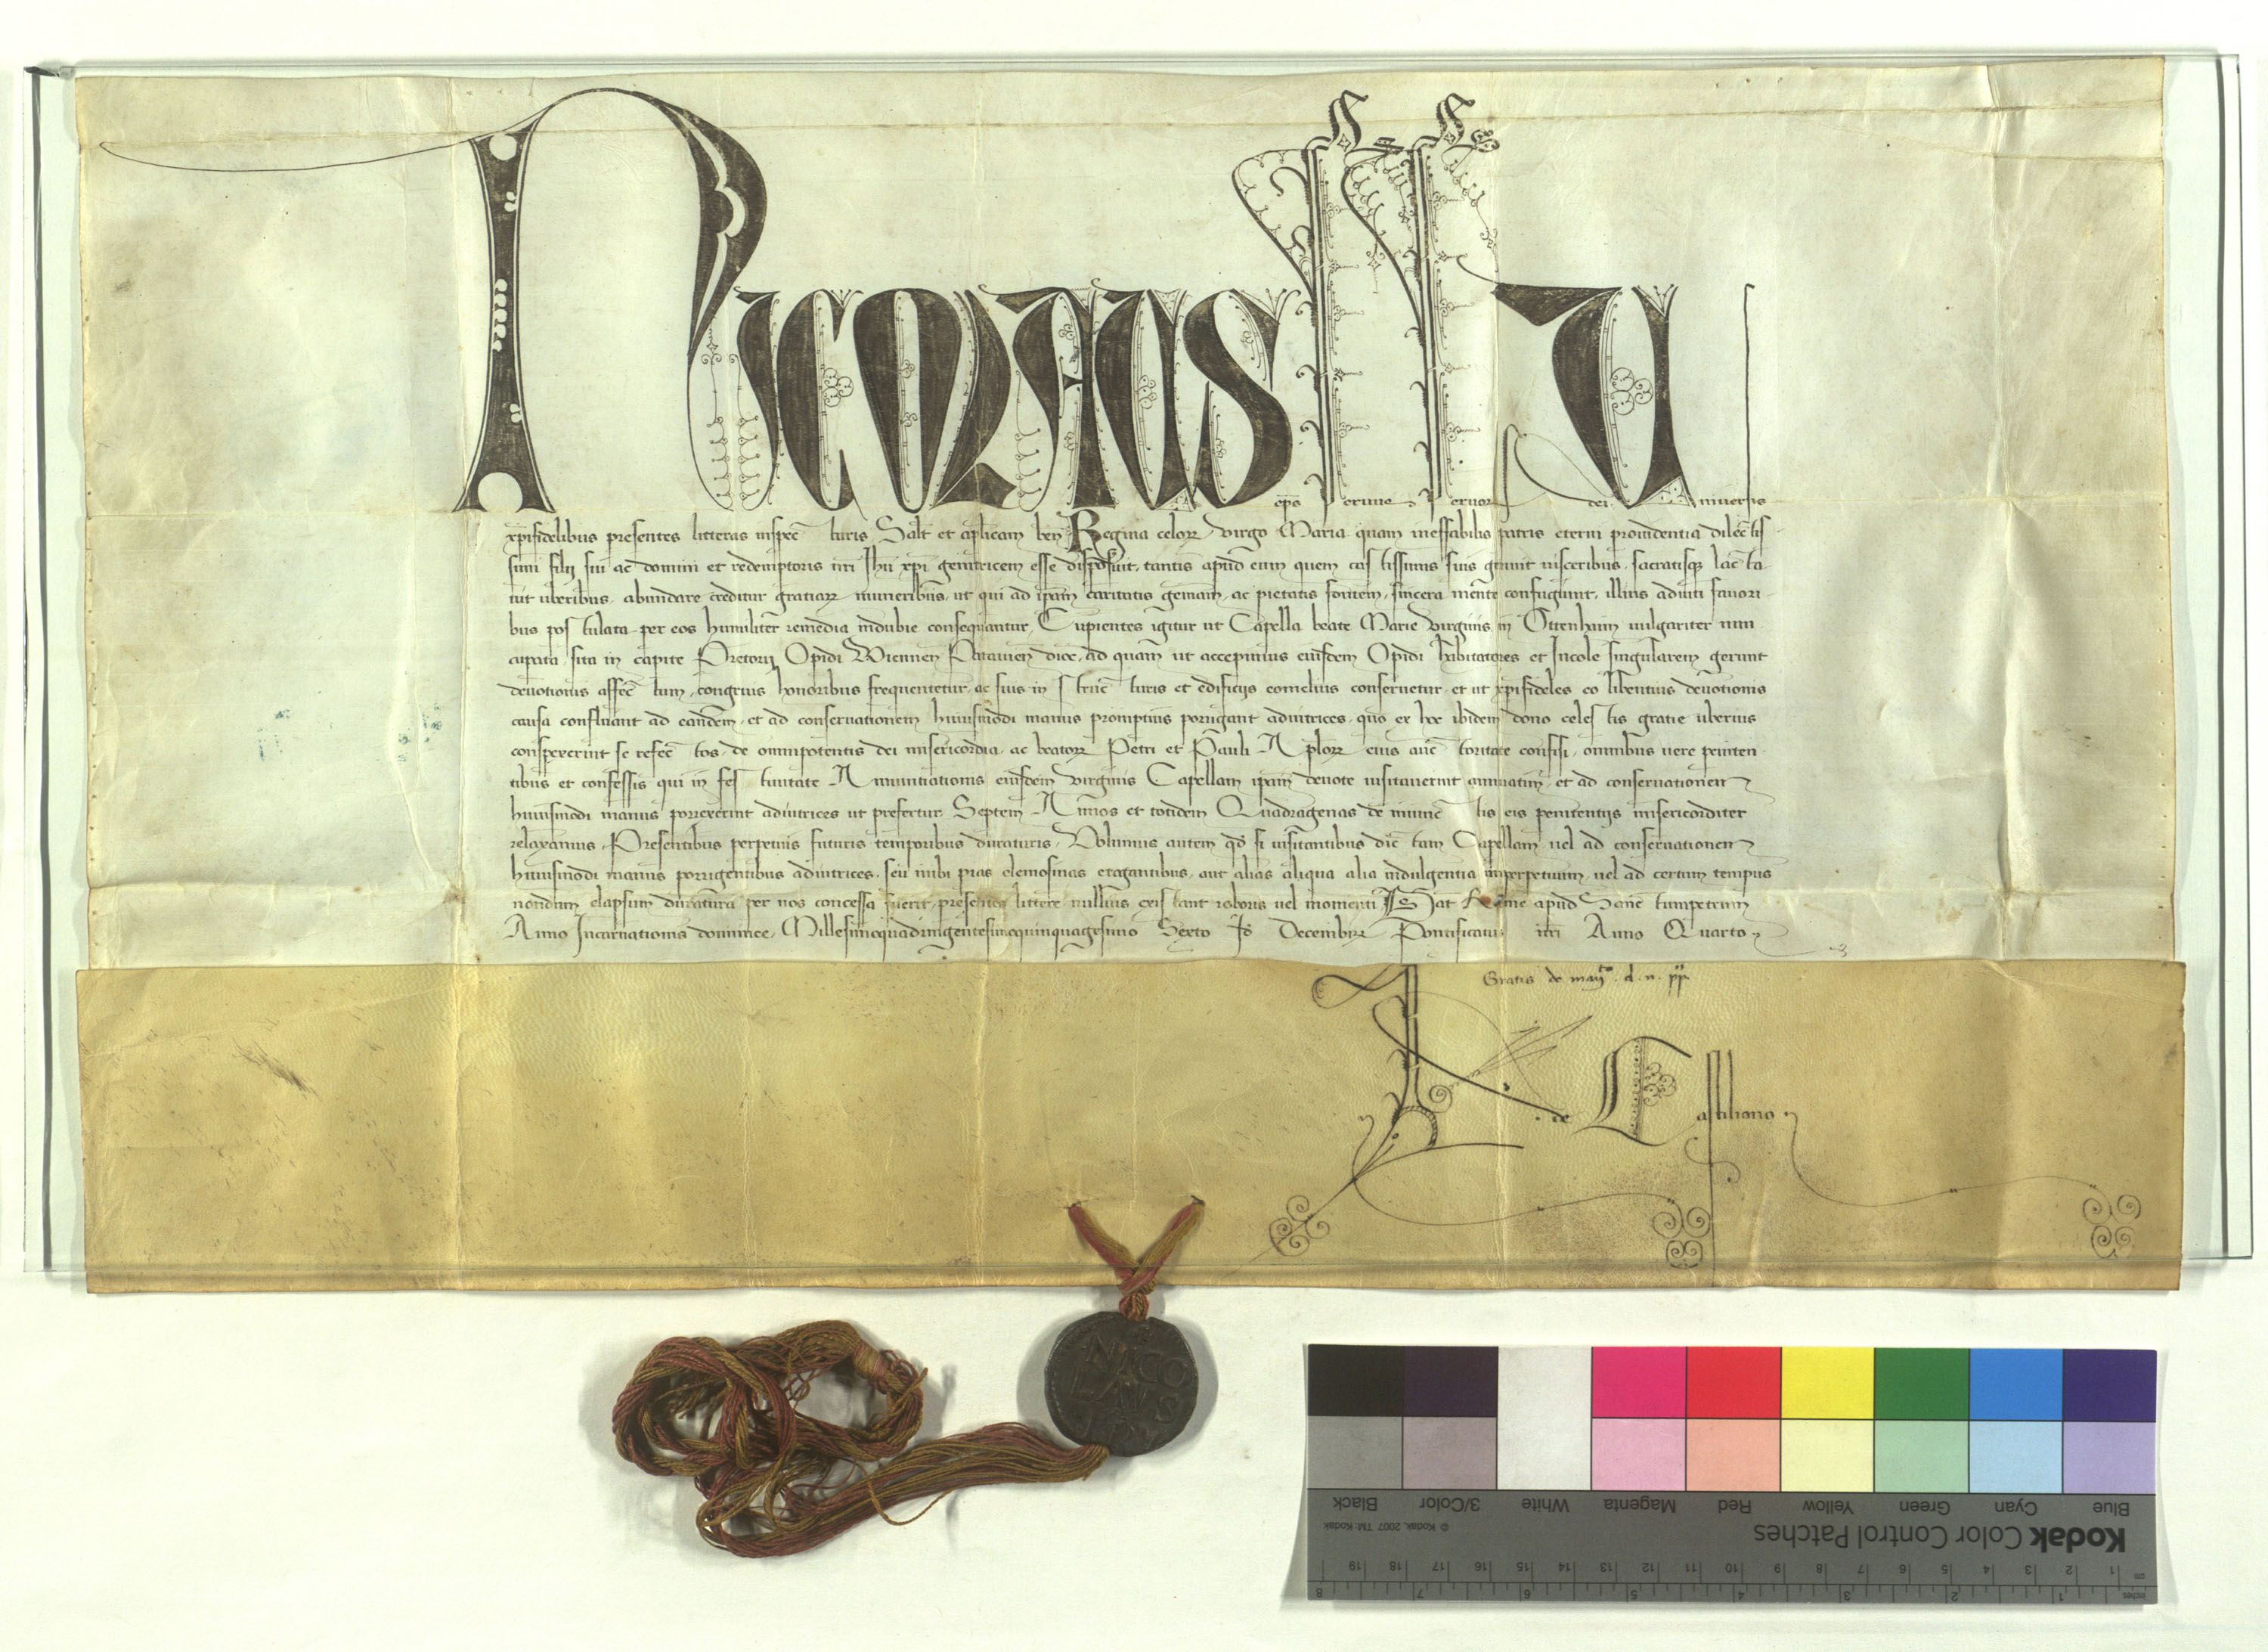 Nicolaus eps Seruus Seruor dei Uniuersis
xpifidelibus presentes litteras inspecturis Salt et aplicam ben Regina celor Virgo Maria quam ineffabilis patris eterni prouidentia dilectis
simi filij sui ac domini et redemptoris nri Jhu xpi genitricem esse disposuit, tantis apud eum quem castissimis suis uisceribus, sacratisq lacta
uit uberibus, abundare creditur gratiar muneribus, ut qui ad ipam caritatis ac pietatis fontem, sincera mente confugiunt, illius adiuti fauori
bus postulata per eos humiliter remedia indubie consequantur, Cupientes igitur ut Capella beate Marie Virginis in Ottenhaim uulgariter nun
cupata, sita in capite Pretorij Opidi Wiennen Patauien dioc, ad quam ut accepimus eiusdem Opidi habitatores et Incole singularem gerunt
deuotionis affectum, congruis honoribus frequentetur, ac suis in structuris et edificijs conseruetur, et ut xpifideles eo libentius deuotionis
causa confluant ad eandem, et ad conseruationem huiusmodi manus promptius porrigant adiutrices, quo ex hoc ibidem dono celestis gratie uberius
conspexerint se refectos, de omnipotentis dei misericordia, ac beator Petri et Pauli Aplor eius auctoritate confisi, omnibus uere peniten
tibus et confessis qui in festiuitate Annuntiationis eiusdem Virginis Capellam ipam deuote uisitauerint annuatim, et ad conseruationem
huiusmodi manus porrexerint adiutrices ut prefertur Septem Annos et totidem Quadragenas de iniunctis eis penitentijs misericorditer
relaxamus, Presentibus perpetuis futuris temporibus duraturis, Volumus autem qd si uisitantibus dictam Capellam uel ad conseruationem
huiusmodi manus porrigentibus adiutrices, seu inibi pias elemosinas erogantibus, aut alias aliqua alia indulgentia imperpetuum, uel ad certum tempus
nondum elapsum duratura per nos concessa fuerit, presentes littere nullius existant roboris uel momenti Dat Rome apud Sanctumpetrum
Anno Incarnationis dominice, Millesimoquadringentesimoquinquagesimo Sexto Id Decembr Pontificatus nri Anno Quarto
Gratis de man . d . n . pp
de Castiliono
NICO
LAVS
Black 3/Color White Magenta Red Yellow Green Cyan Blue
© Kodak, 2007 TM: Kodak
Kodak Color Control Patches
cm 1 2 3 4 5 6 7 8 9 10 11 12 13 14 15 16 17 18 19
inches 1 2 3 4 5 6 7 8